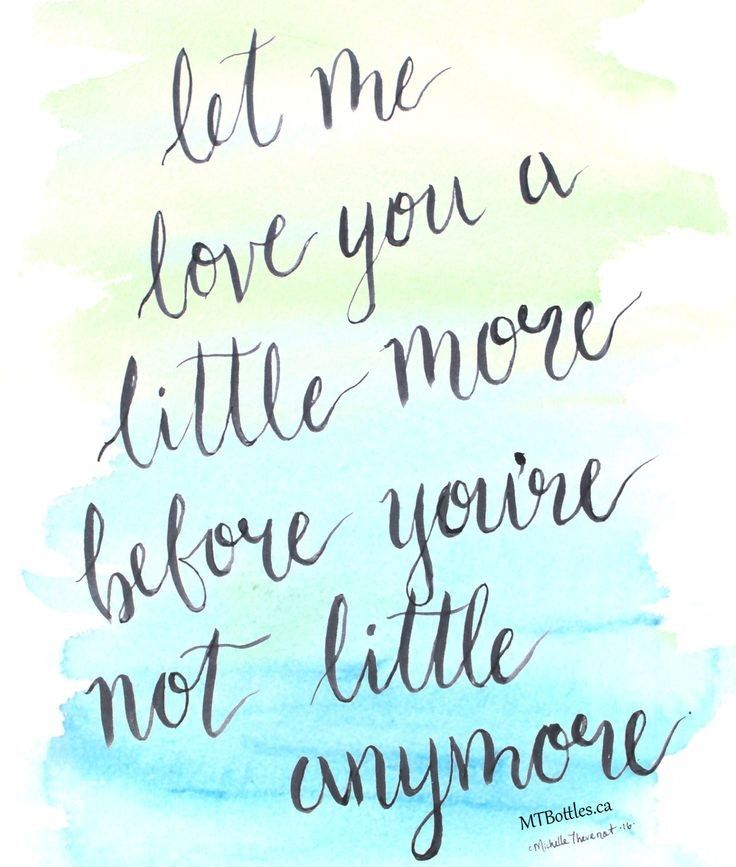 let me
love you a
little more
before you're
not little
anymore
MTBottles.ca
©Michelle Thevenot ·16·